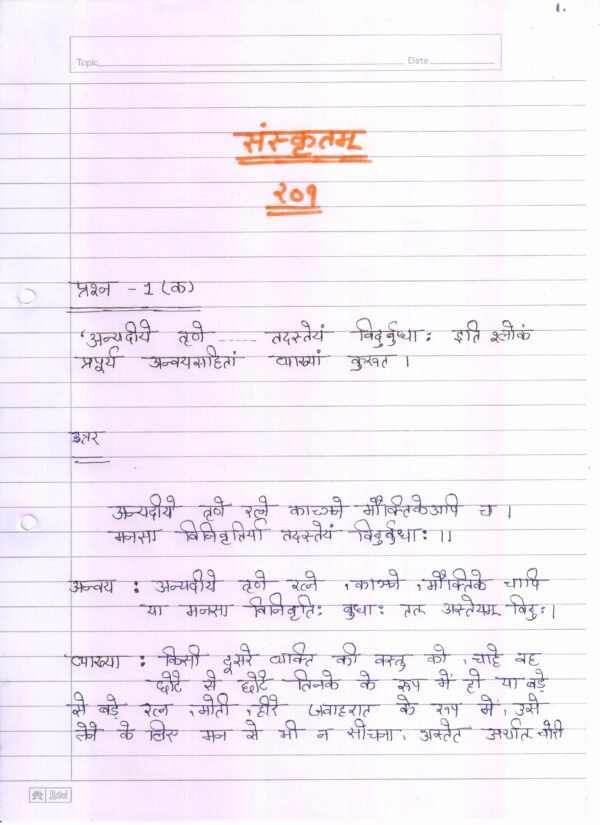 1.
Topic Date
संस्कृतम्
२०१
प्रश्न - 1 (क)
'अन्यदीये तृणे ...... तदस्तेयं विदुर्बुधाः इति श्लोकं
प्रपूर्य अन्वयसहितां व्याख्यां कुरुत ।
उत्तर
अन्यदीये तृणे रत्ने काञ्चने मौक्तिकेअपि च ।
मनसा विनिवृत्तिर्या तदस्तेयं विदुर्बुधाः ।।
अन्वय : अन्यदीये तृणे रत्ने , काञ्चने , मौक्तिके चापि
या मनसा विनिवृतिः बुधाः तत् अस्तेयम् विदुः ।
व्याख्या : किसी दूसरे व्यक्ति की वस्तु को , चाहे वह
छोटे से छोटे तिनके के रूप में हो या बड़े
से बड़े रत्न , मोती , हीरे जवाहरात के रूप में , उसे
लेने के लिए मन से भी न सोचना , अस्तेत अर्थात चोरी